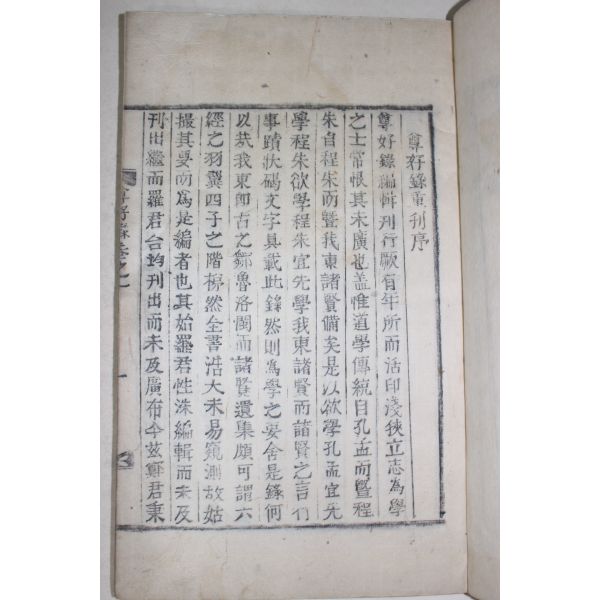 尊好錄重刊序
尊好錄編輯刊行厥有年所而活印淺狹立志為學
之士常恨其未廣也盖惟道學傳統自孔孟而曁程
朱自程朱而曁我東諸賢備矣是以欲學孔孟宜先
學程朱欲學程朱宜先學我東諸賢而諸賢之言行
事蹟狀碣文字具載此錄然則為學之要舍是錄何
以㢤我東即古之鄒魯洛閩而諸賢遺集頗可謂六
經之羽翼四子之階梯然全書浩大未易窺測故姑
撮其要而為是編者也其始羅君性洙編輯而未及
刊出繼而羅君台均刊出而未及廣布今玆鄭君秉
尊好錄卷之一